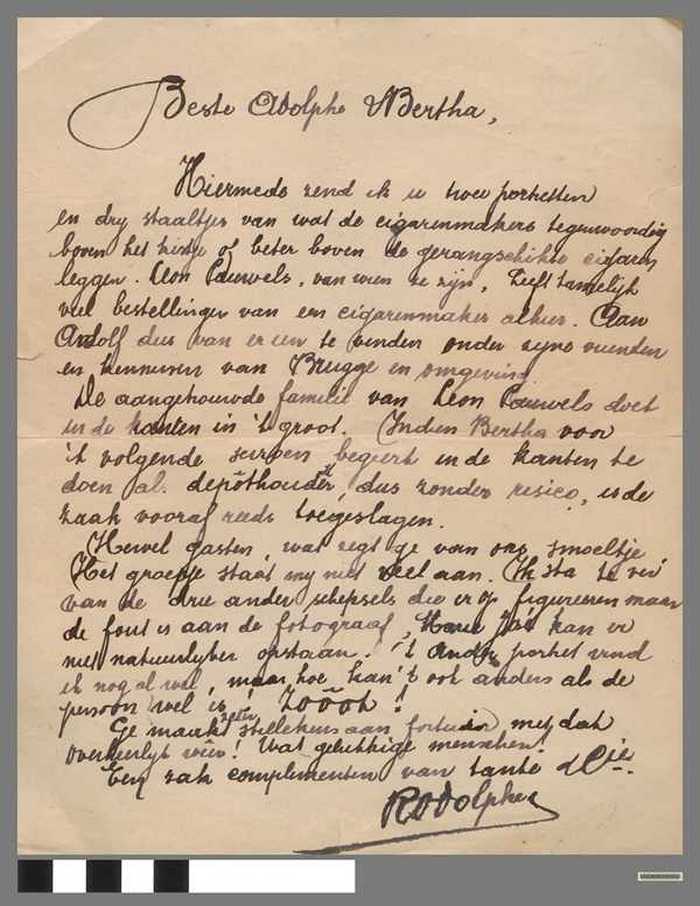 Beste Adolphe & Bertha,
Hiermede zend ik u twee portretten
en dry staaltjes van wat de cigarenmakers tegenwoordig
boven het kistje of beter boven de gerangschikte cigaren
leggen. Leon Pauwels, van wien ze zijn, heeft tamelijk
veel bestellingen van een cigarenmaker alhier. Aan
Adolf dus van er een te vinden onder zyne vrienden
en kennissen van Brugge en omgeving.
De aangetrouwde familie van Leon Pauwels doet
in de kanten in 't groot. Indien Bertha voor
't volgende seizoen begeert in de kanten te
doen als depôthouder, dus zonder risico, is de
zaak vooraf reeds toegeslagen.
Hewel gasten, wat zegt ge van ons smoeltje
Het groepje staat my niet veel aan. Ik sta te ver
van de drie ander schepsels die er op figureeren maar
de fout is aan de fotograaf, kan er
niet natuurlyker opstaan. 't Ander portret vind
ik nog al wel, maar hoe kan 't ook anders als de
persoon wel is! Zoôot!
Ge maakt zeker stillekens aan fortuin met dat
overheerlyk weer! Wat gelukkige menschen!
Een zak complimenten van tante & Cie.
Rodolphe